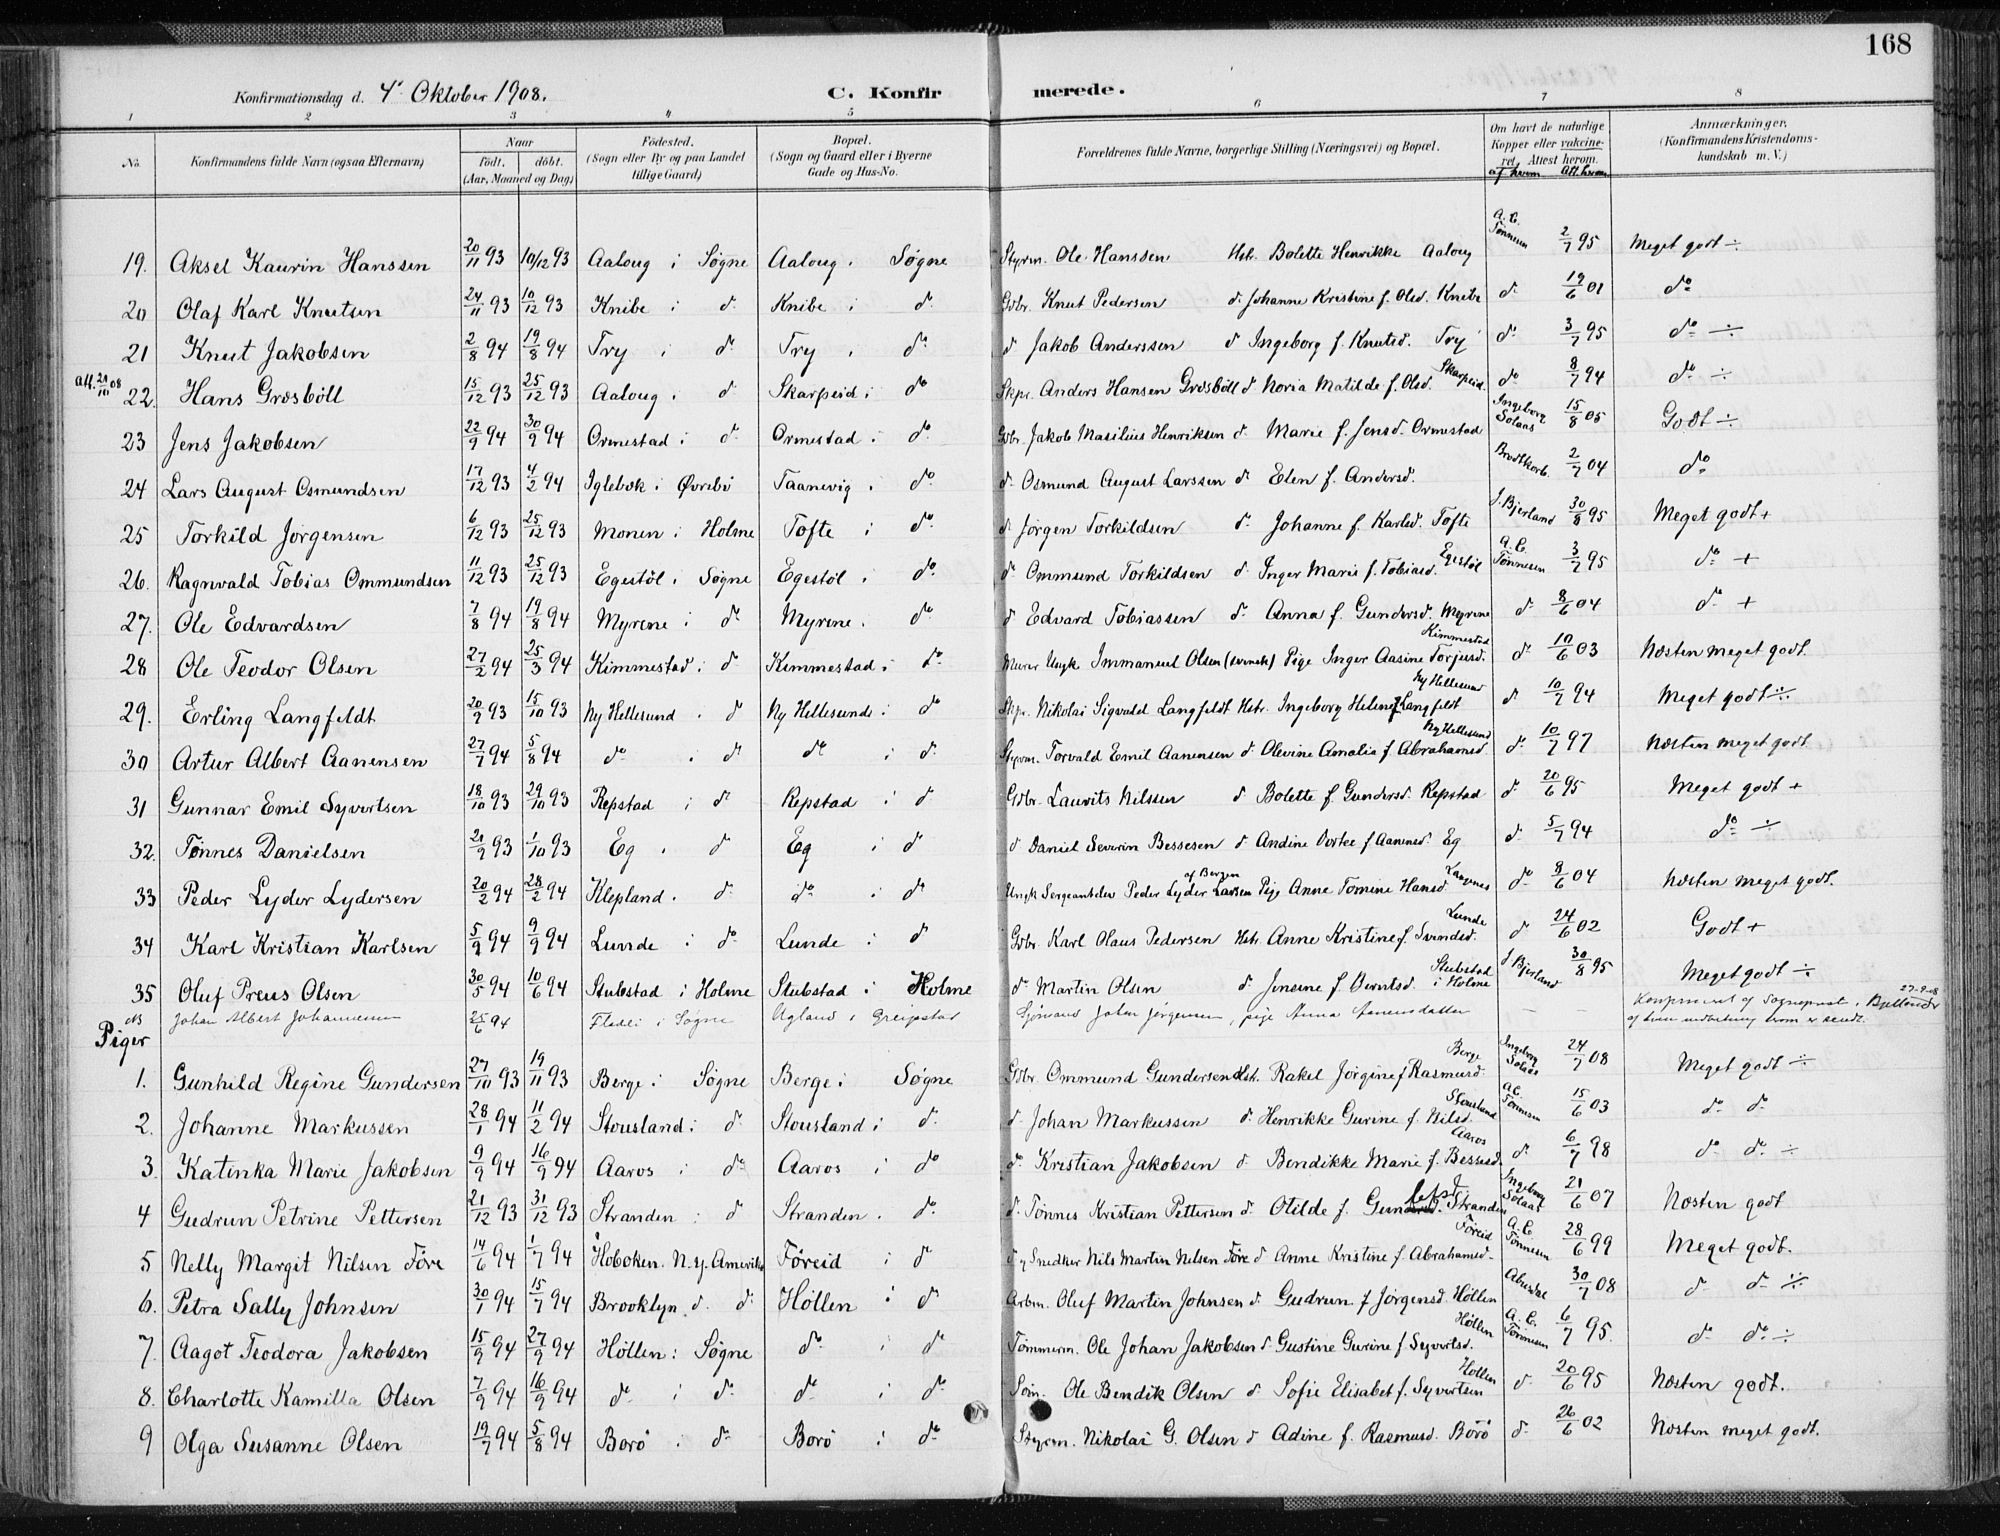 168
Konfirmationsdag d. 4de Oktober 1908. C. Konfir merede.
1 2 3 4 5 6 7 8
No. Konfirmandens fulde Navn (ogsaa Efternavn) Naar født. døbt. (Aar, Maaned og Dag) Fødested. (Sogn eller By og paa Landet tillige Gaard) Bopæl. (Sogn og Gaard eller i Byerne Gade og Hus-No. Forældrenes fulde Navne, borgerlige Stilling (Næringsvei) og Bopæl. Om havt de naturlige Kopper eller vakcineret. Attest herom. af hvem Att. hvem Anmærkninger. (Konfirmandens Kristendomskundskab m. V.)
19. Aksel Kaurin Hanssen 20/11 93 10/12 93 Aaloug i Søgne Aaloug i Søgne Styrm. Ole Hanssen Hstr. Bolette Henrikke Aaloug A. C. Tønnesen 2/7 95 Meget godt ÷
20 Olaf Karl Knutsen 24/11 93 10/12 93 Knibe i do Knibe i do Gdbr. Knut Pedersen do Johanne Kristine f. Olsd. Knibe do 19/6 01 do
21 Knut Jakobsen 2/8 94 19/8 94 Try i do Try i do do Jakob Anderssen do Ingeborg f. Knutsd. Try do 3/7 95 do ÷
Att. 21/10 08 22. Hans Grosbøll 15/12 93 25/12 93 Aaloug i do Skarpeid i do Skpr. Anders Hansen Grosbøll do Noria Matilde f. Olsd. Skarpeid. do 8/7 94 do ÷
23 Jens Jakobsen 22/9 94 30/9 94 Ormestad i do Ormestad i do Gdbr. Jakob Masilius Henriksen do Marie f. Jensd. Ormestad Ingeborg Solaas 15/8 05 Godt ÷
24 Lars August Osmundsen 17/12 93 4/2 94 Iglebæk i Øvrebø Taanevig i do do Osmund August Larssen do Elen f. Andersd. Brodtkorb. 2/7 04 do
25 Torkild Jørgensen 6/12 93 25/12 93 Monen i Holme Tofte i do do Jørgen Torkildsen do Johanne f. Karlsd. Tofte J. Bjerland 30/8 95 Meget godt +
26. Ragnvald Tobias Ommundsen 11/12 93 25/12 93 Egestøl i Søgne Egestøl i do do Ommund Torkildsen do Inger Marie f. Tobiasd. Egestøl A. C. Tønnesen 3/7 95 do +
27. Ole Edvardsen 7/8 94 19/8 94 Myrene i do Myrene i do do Edvard Tobiassen do Anna f. Gundersd. Myrene do 8/6 04 do +
28 Ole Teodor Olsen 27/2 94 25/3 94 Kimmestad i do Kimmestad i do Murer Ungk Immanuel Olsen (svensk) Pige Inger Aasine Torjusd. Kimmestad do 10/6 03 Næsten meget godt.
29. Erling Langfeldt 20/9 93 15/10 93 Ny Hellesund i do Ny Hellesund i do Skpr. Nikolai Sigvald Langfeldt Hstr. Ingeborg Helene f Langfeldt Ny Hellesund do 10/7 94 Meget godt ÷
30 Artur Albert Aanensen 27/7 94 5/8 94 do i do do i do Styrm. Torvald Emil Aanensen do Olevine Amalia f. Abrahamsd. Ny Hellesund do 10/7 97 Næsten meget godt
31 Gunnar Emil Syvertsen 18/10 93 29/10 93 Repstad i do Repstad i do Gdbr. Laurits Nilssen do Bolette f. Gundersd. Repstad do 20/6 95 Meget godt +
32. Tønnes Danielsen 21/9 93 1/10 93 Eg i do Eg i do do Daniel Severin Bessesen do Andine Dortee f Aanensd. Eg do 5/7 94 do ÷
33 Peder Lyder Lydersen 20/2 94 28/2 94 Klepland i do do i do Ungk Sergeantelev Peder Lyder Larsen af Bergen Pige Anne Tomine Hansd. do 8/6 04 Næsten meget godt.
34 Karl Kristian Karlsen 5/9 94 9/9 94 Lunde i do Lunde i do Gdbr. Karl Olaus Pedersen Hstr. Anne Kristine f. Svendsd. Lunde do 24/6 02 Godt +
35 Oluf Preus Olsen 30/5 94 10/6 94 Stubstad i Holme Stubstad i Holme do Martin Olsen do Jensine f. Berntsd. Stubstad i Holme J Bjerland 30/8 95 Meget godt ÷
NB Johan Albert Johannessen 25/6 94 i Søgne Agland i Greipstad Sjømand Johan Jørgensen, pige Anna Aanensdatter — — 27-9-08
Piger
1. Gunhild Regine Gundersen 27/10 93 19/11 93 Berge i Søgne Berge i Søgne Gdbr. Ommund Gundersen Hstr. Rakel Jørgine f Rasmusd. Berge Ingeborg Solaas 24/7 08 Meget godt ÷
2. Johanne Markussen 28/1 94 11/2 94 Stousland i do Stousland i do do Johan Markussen do Henrikke Gurine f. Nilsd. Stousland A.C. Tønnesen 15/6 03 do do
3. Katinka Marie Jakobsen 9/9 94 16/9 94 Aaros i do Aaros i do do Kristian Jakobsen do Bendikke Marie f. Bessesd. Aaros do 6/7 98 do do ÷
4 Gudrun Petrine Pettersen 21/12 93 31/12 93 Stranden i do Stranden i do do Tønnes Kristian Pettersen do Otilde f. Stranden Ingeborg Solaas 21/6 07 Næsten godt
5 Nelly Margit Nilsen Føre 14/6 94 1/7 94 Hoboken. N. y. Amerika Føreid i do do og Snedker Nils Martin Nilsen Føre do Anne Kristine f. Abrahamsd. Føreid A. C. Tønnesen 28/6 99 Meget godt.
6. Petra Sally Johnsen 30/1 94 15/7 94 Brooklyn. do do Høllen i do Arbm. Oluf Martin Johnsen do Gudrun f Jørgensd. Høllen 30/7 08 do do ÷
7. Aagot Teodora Jakobsen 15/9 94 27/9 94 Høllen i Søgne do i do Tømmerm. Ole Johan Jakobsen do Gustine Gurine f. Syvertsd. Høllen A. C. Tønnesen 6/7 95. do do ÷
8. Charlotte Kamilla Olsen 7/9 94 16/9 94 do i do do i do Ole Bendik Olsen do Sofie Elisabet f. Syvertsen Høllen do 20/6 95 Næsten godt.
9 Olga Susanne Olsen 19/7 94 5/8 94 Borø i do Borø i do Styrm. Nikolai G. Olsen do Adine f. Rasmusd. Borø do 26/6 02 Næsten meget godt.